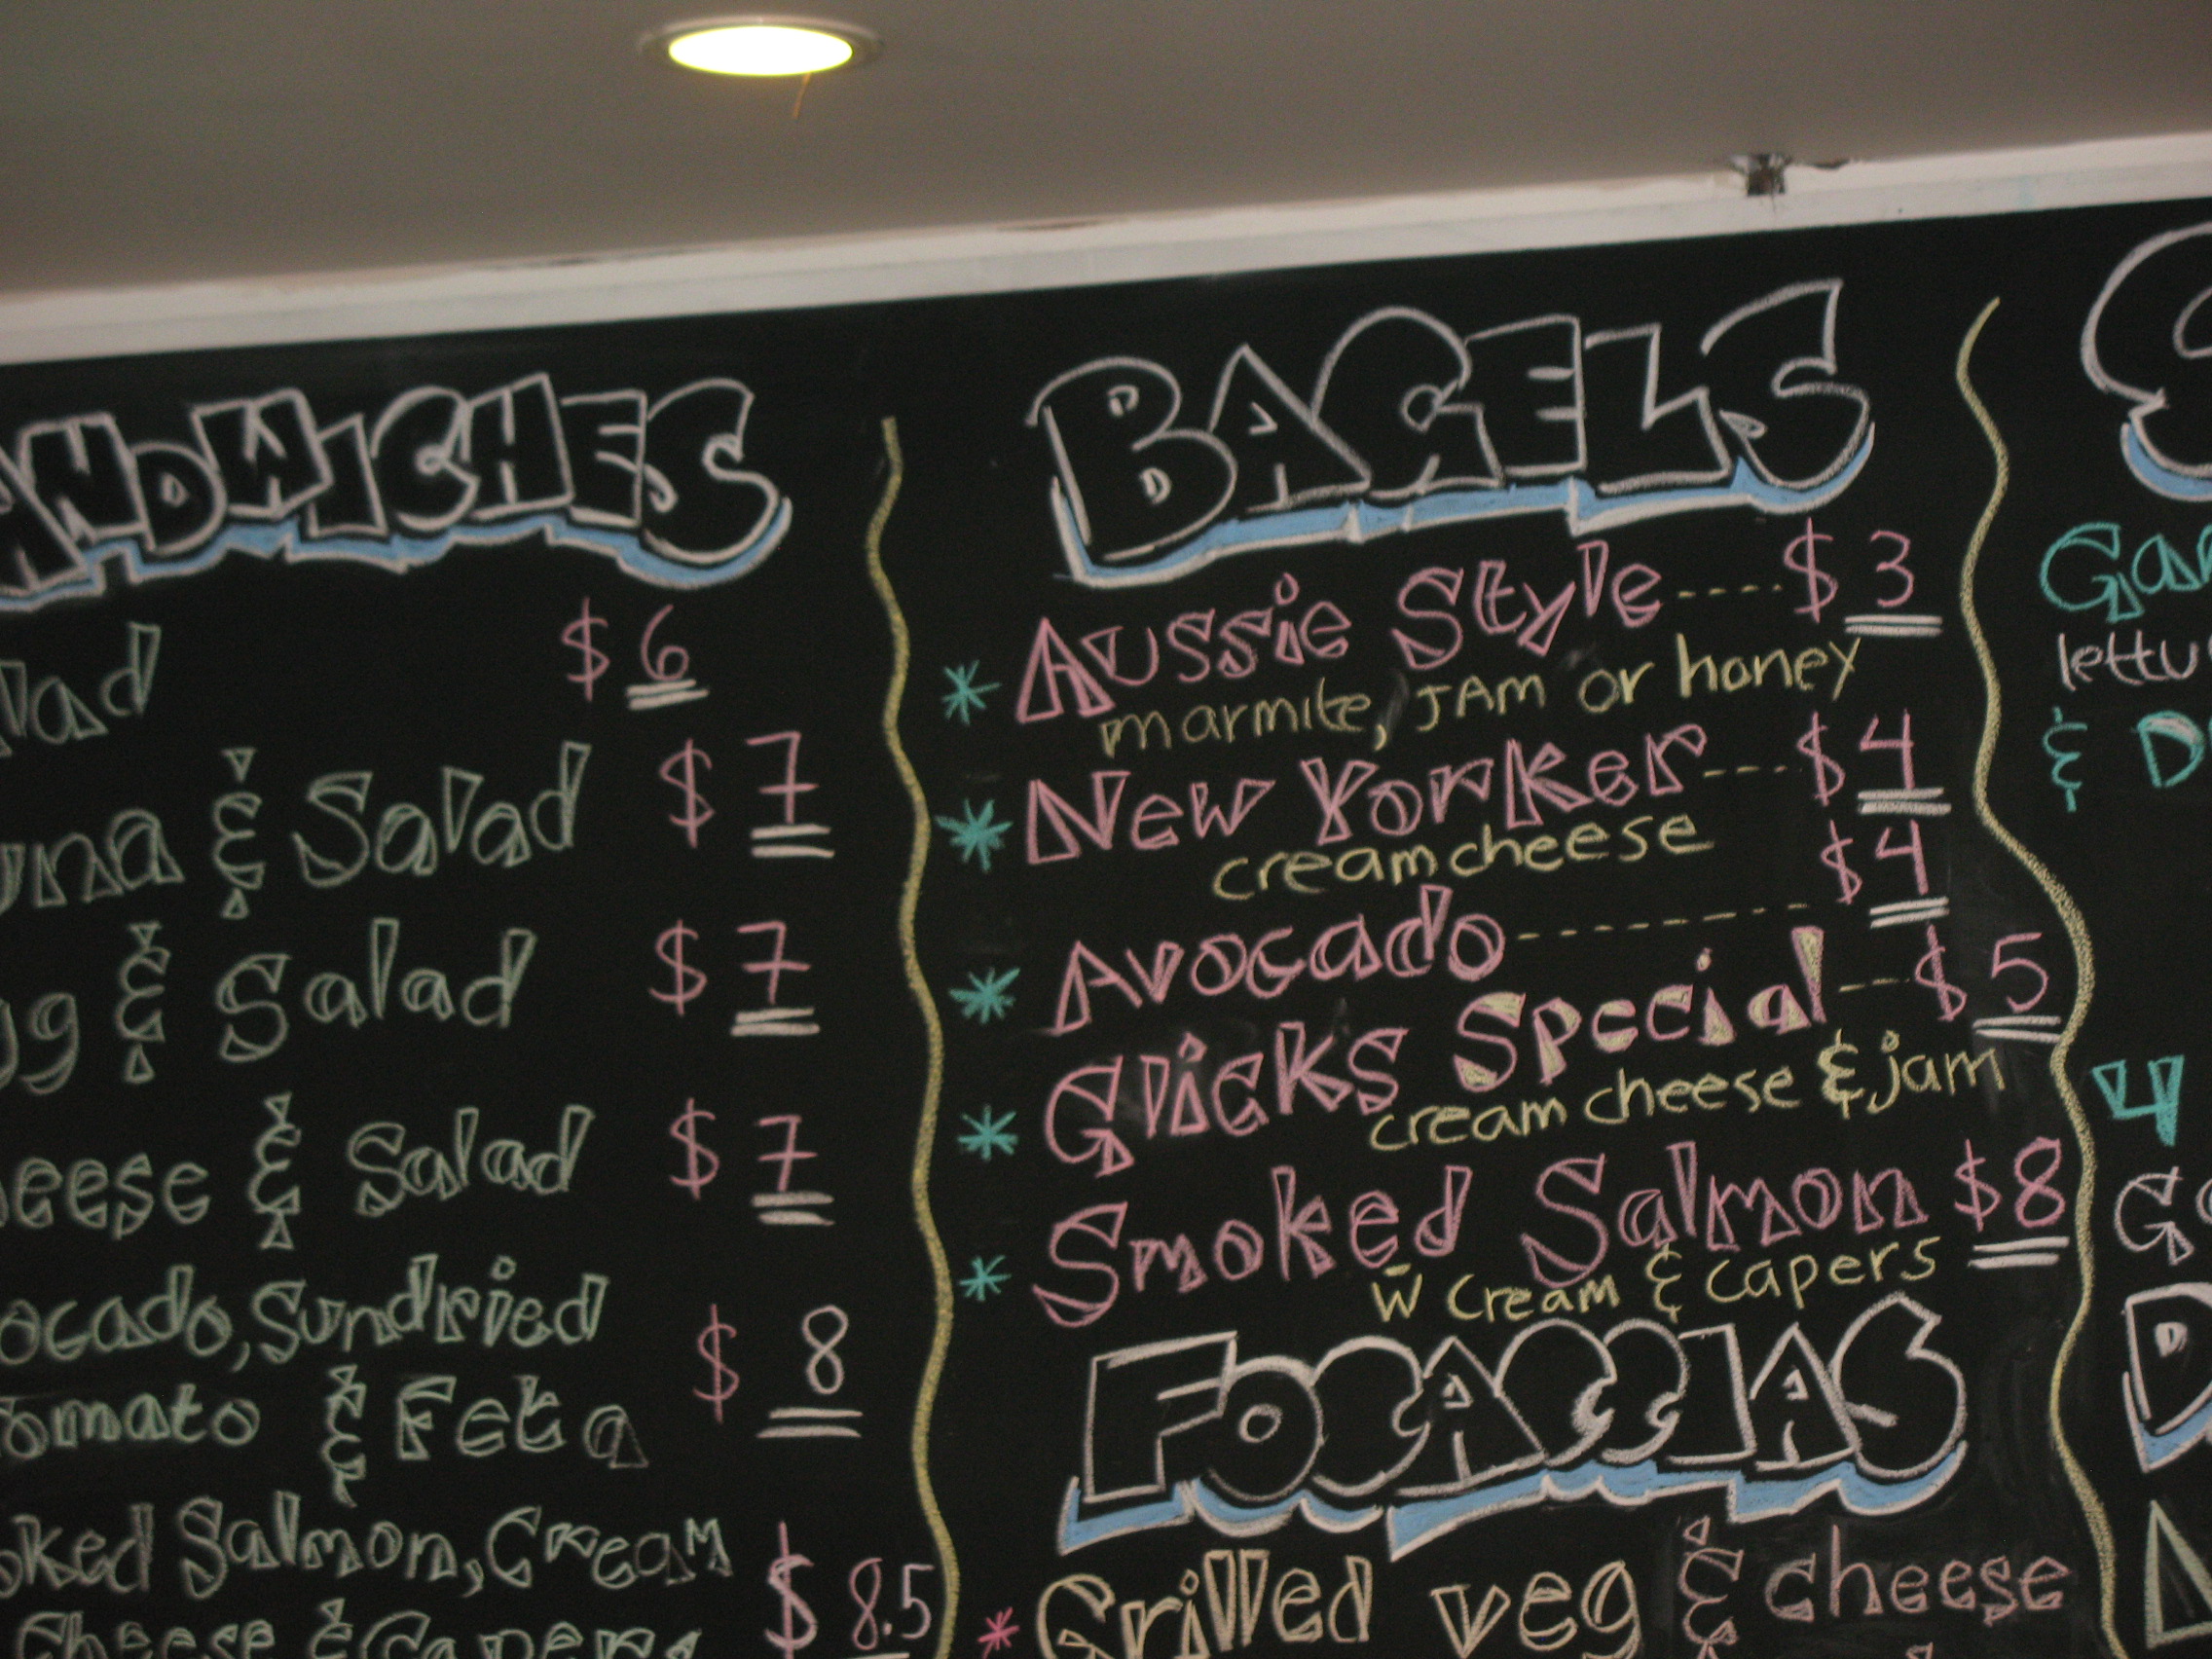 ANDWICHES
lad $6
una & Salad $7
gg & Salad $7
eese & Salad $7
ocado, Sundried
omato & Feta $8
oked Salmon, Cream
Cheese & Capers $8.5
BAGELS
* Aussie Style ---- $3
marmite, JAM or honey
* New Yorker --- $4
creamcheese
* Avocado ------- $4
* Glicks Special --- $5
cream cheese & jam
* Smoked Salmon $8
w̄ cream & capers
FOCACCIAS
* Grilled veg & cheese
S
Gar
lettu
& D
4
G
D